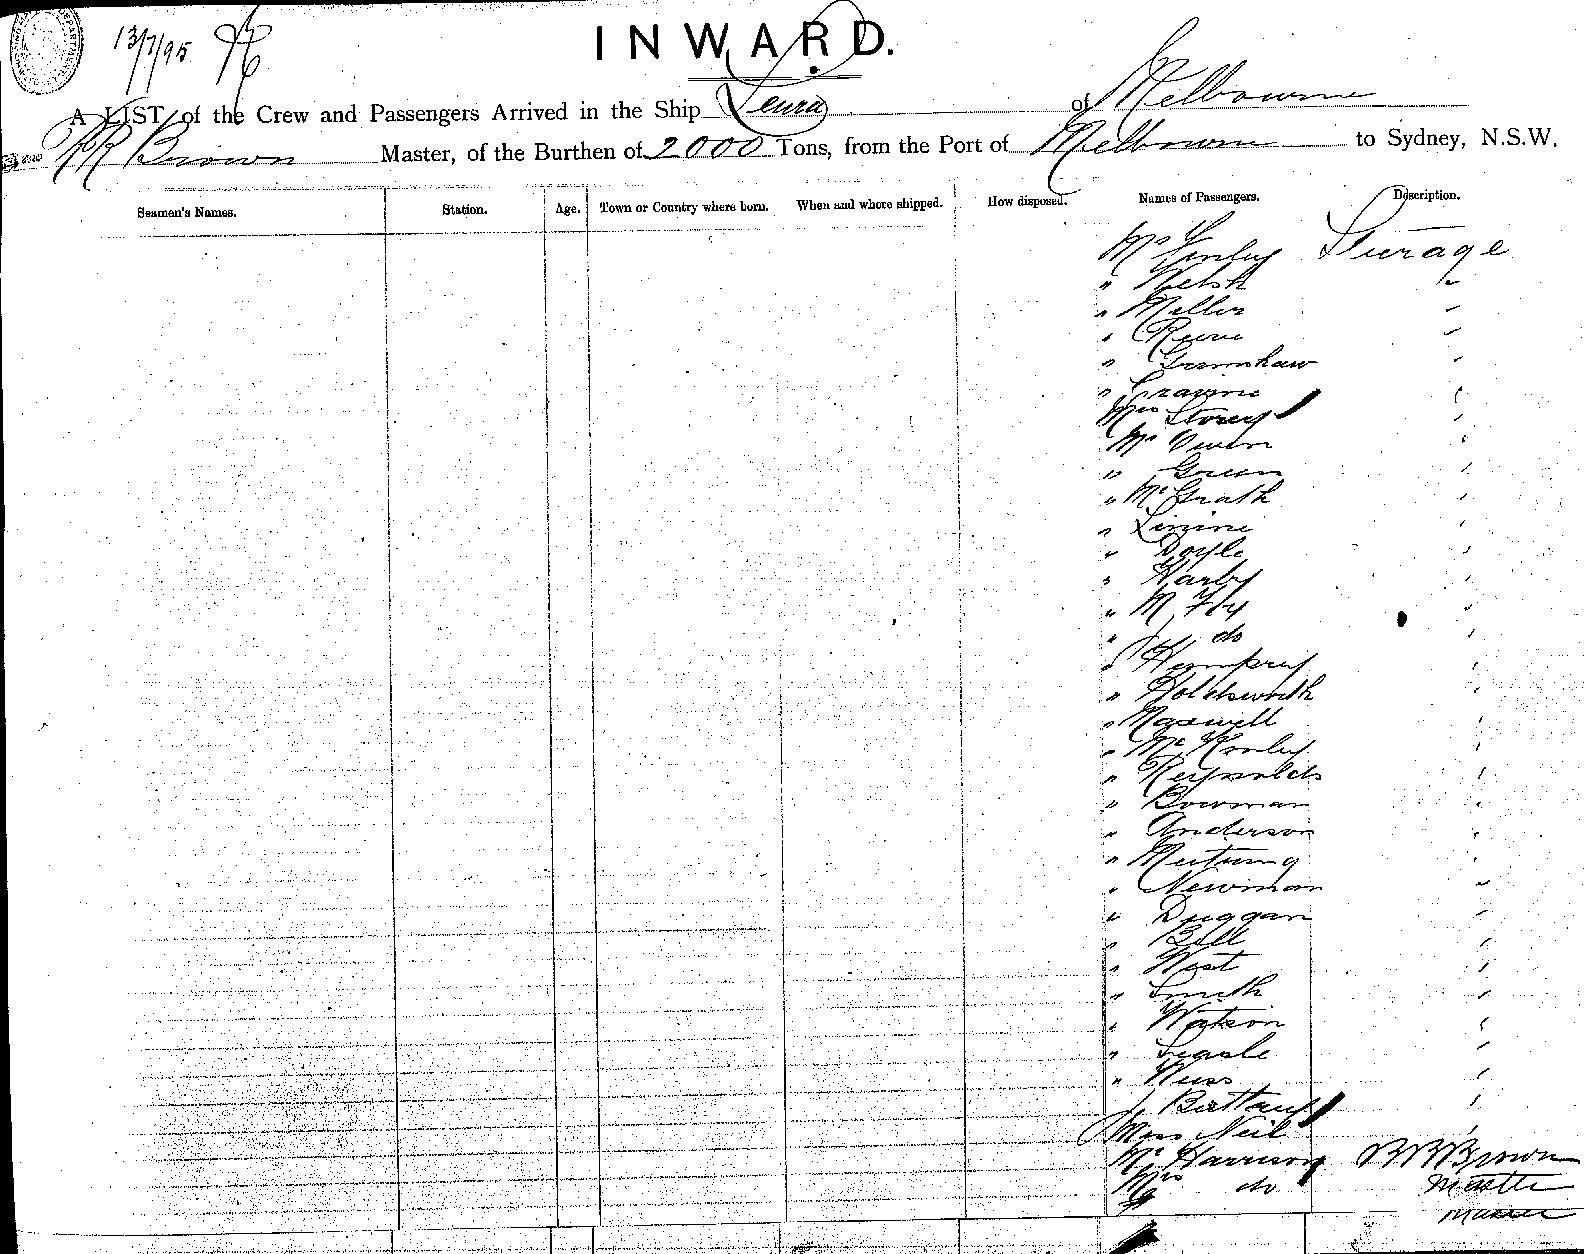 13/7/95
INWARD.
A LIST of the Crew and Passengers Arrived in the Ship Leura of Melbourne
Brown Master, of the Burthen of 2000 Tons, from the Port of Melbourne to Sydney, N.S.W.
Seamen's Names. Station. Age. Town or Country where born. When and where shipped. How disposed. Names of Passengers. Description.
Mr Steerage
" Welsh "
" Miller "
"
" Grimshaw "
"
Mrs Storey "
Mr Owen "
" Green "
" McGrath "
"
" Doyle "
" Harby "
" M Foy "
" do "
" Hemprey "
" Holdsworth "
" Maxwell "
" Mc "
" Reynolds "
" Bowman "
" Anderson "
"
" Newman "
" Duggan "
" Bell "
" West "
" Smith "
" Watson "
" "
" "
"
Miss Neil "
Mr Harrison Brown
Mrs do Master